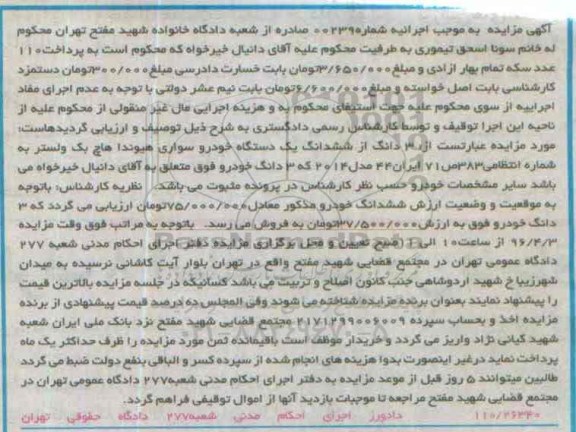 آگهی مزایده به موجب اجرائیه شماره ۰۰۲۳۹ صادره از شعبه دادگاه خانواده شهید مفتح تهران محکوم
له خانم سونا اسحق تیموری به طرفیت محکوم علیه آقای دانیال خیرخواه که محکوم است به پرداخت۱۱۰
عدد سکه تمام بهار آزادی و مبلغ۳/۶۵۰/۰۰۰تومان بابت خسارت دادرسی مبلغ۳۰۰/۰۰۰تومان دستمزد
کارشناسی بابت اصل خواسته و مبلغ۶/۶۰۰/۰۰۰تومان بابت نیم عشر دولتی با توجه به عدم اجرای مفاد
اجراییه از سوی محکوم علیه جهت استیفای محکوم به و هزینه اجرایی مال غیر منقولی از محکوم علیه از
ناحیه این اجرا توقیف و توسط کارشناس رسمی دادگستری به شرح ذیل توصیف و ارزیابی گردیدهاست:
مورد مزایده عبارتست از: ۳ دانگ از ششدانگ یک دستگاه خودرو سواری هیوندا هاچ بک ولستر به
شماره انتظامی۳۸۳ص۷۱ ایران۴۴ مدل۲۰۱۴ که ۳ دانگ خودرو فوق متعلق به آقای دانیال خیرخواه می
باشد سایر مشخصات خودرو حسب نظر کارشناس در پرونده مثبوت می باشد. نظریه کارشناس: باتوجه
به موقعیت و وضعیت ارزش ششدانگ خودرو مذکور معادل۷۵/۰۰۰/۰۰۰تومان ارزیابی می گردد که ۳
دانگ خودرو فوق به ارزش۳۷/۵۰۰/۰۰۰تومان به فروش می رسد. باتوجه به مراتب فوق وقت مزایده
۹۶/۴/۳ از ساعت۱۰ الی۱۱ صبح تعیین و محل برگزاری مزایده دفتر اجرای احکام مدنی شعبه ۲۷۷
دادگاه عمومی تهران در مجتمع قضایی شهید مفتح واقع در تهران بلوار آیت کاشانی نرسیده به میدان
شهرزیبا خ شهید اردوشاهی جنب کانون اصلاح و تربیت می باشد کسانیکه در جلسه مزایده بالاترین قیمت
را پیشنهاد نمایند بعنوان برنده مزایده شناخته می شوند وفی المجلس ده درصد قیمت پیشنهادی از برنده
مزایده اخذ و بحساب سپرده ۲۱۷۱۲۹۹۰۰۶۰۰۹ مجتمع قضایی شهید مفتح نزد بانک ملی ایران شعبه
شهید کیانی نژاد واریز می گردد و خریدار موظف است باقیمانده ثمن مورد مزایده را ظرف حداکثر یک ماه
پرداخت نماید درغیر اینصورت بدوا هزینه های انجام شده از سپرده کسر و الباقی بنفع دولت ضبط می گردد
طالبین میتوانند ۵ روز قبل از موعد مزایده به دفتر اجرای احکام مدنی شعبه۲۷۷ دادگاه عمومی تهران در
مجتمع قضایی شهید مفتح مراجعه تا موجبات بازدید آنها از اموال توقیفی فراهم گردد.
۱۱۰/۲۶۳۴۰ دادورز اجرای احکام مدنی شعبه۲۷۷ دادگاه حقوقی تهران